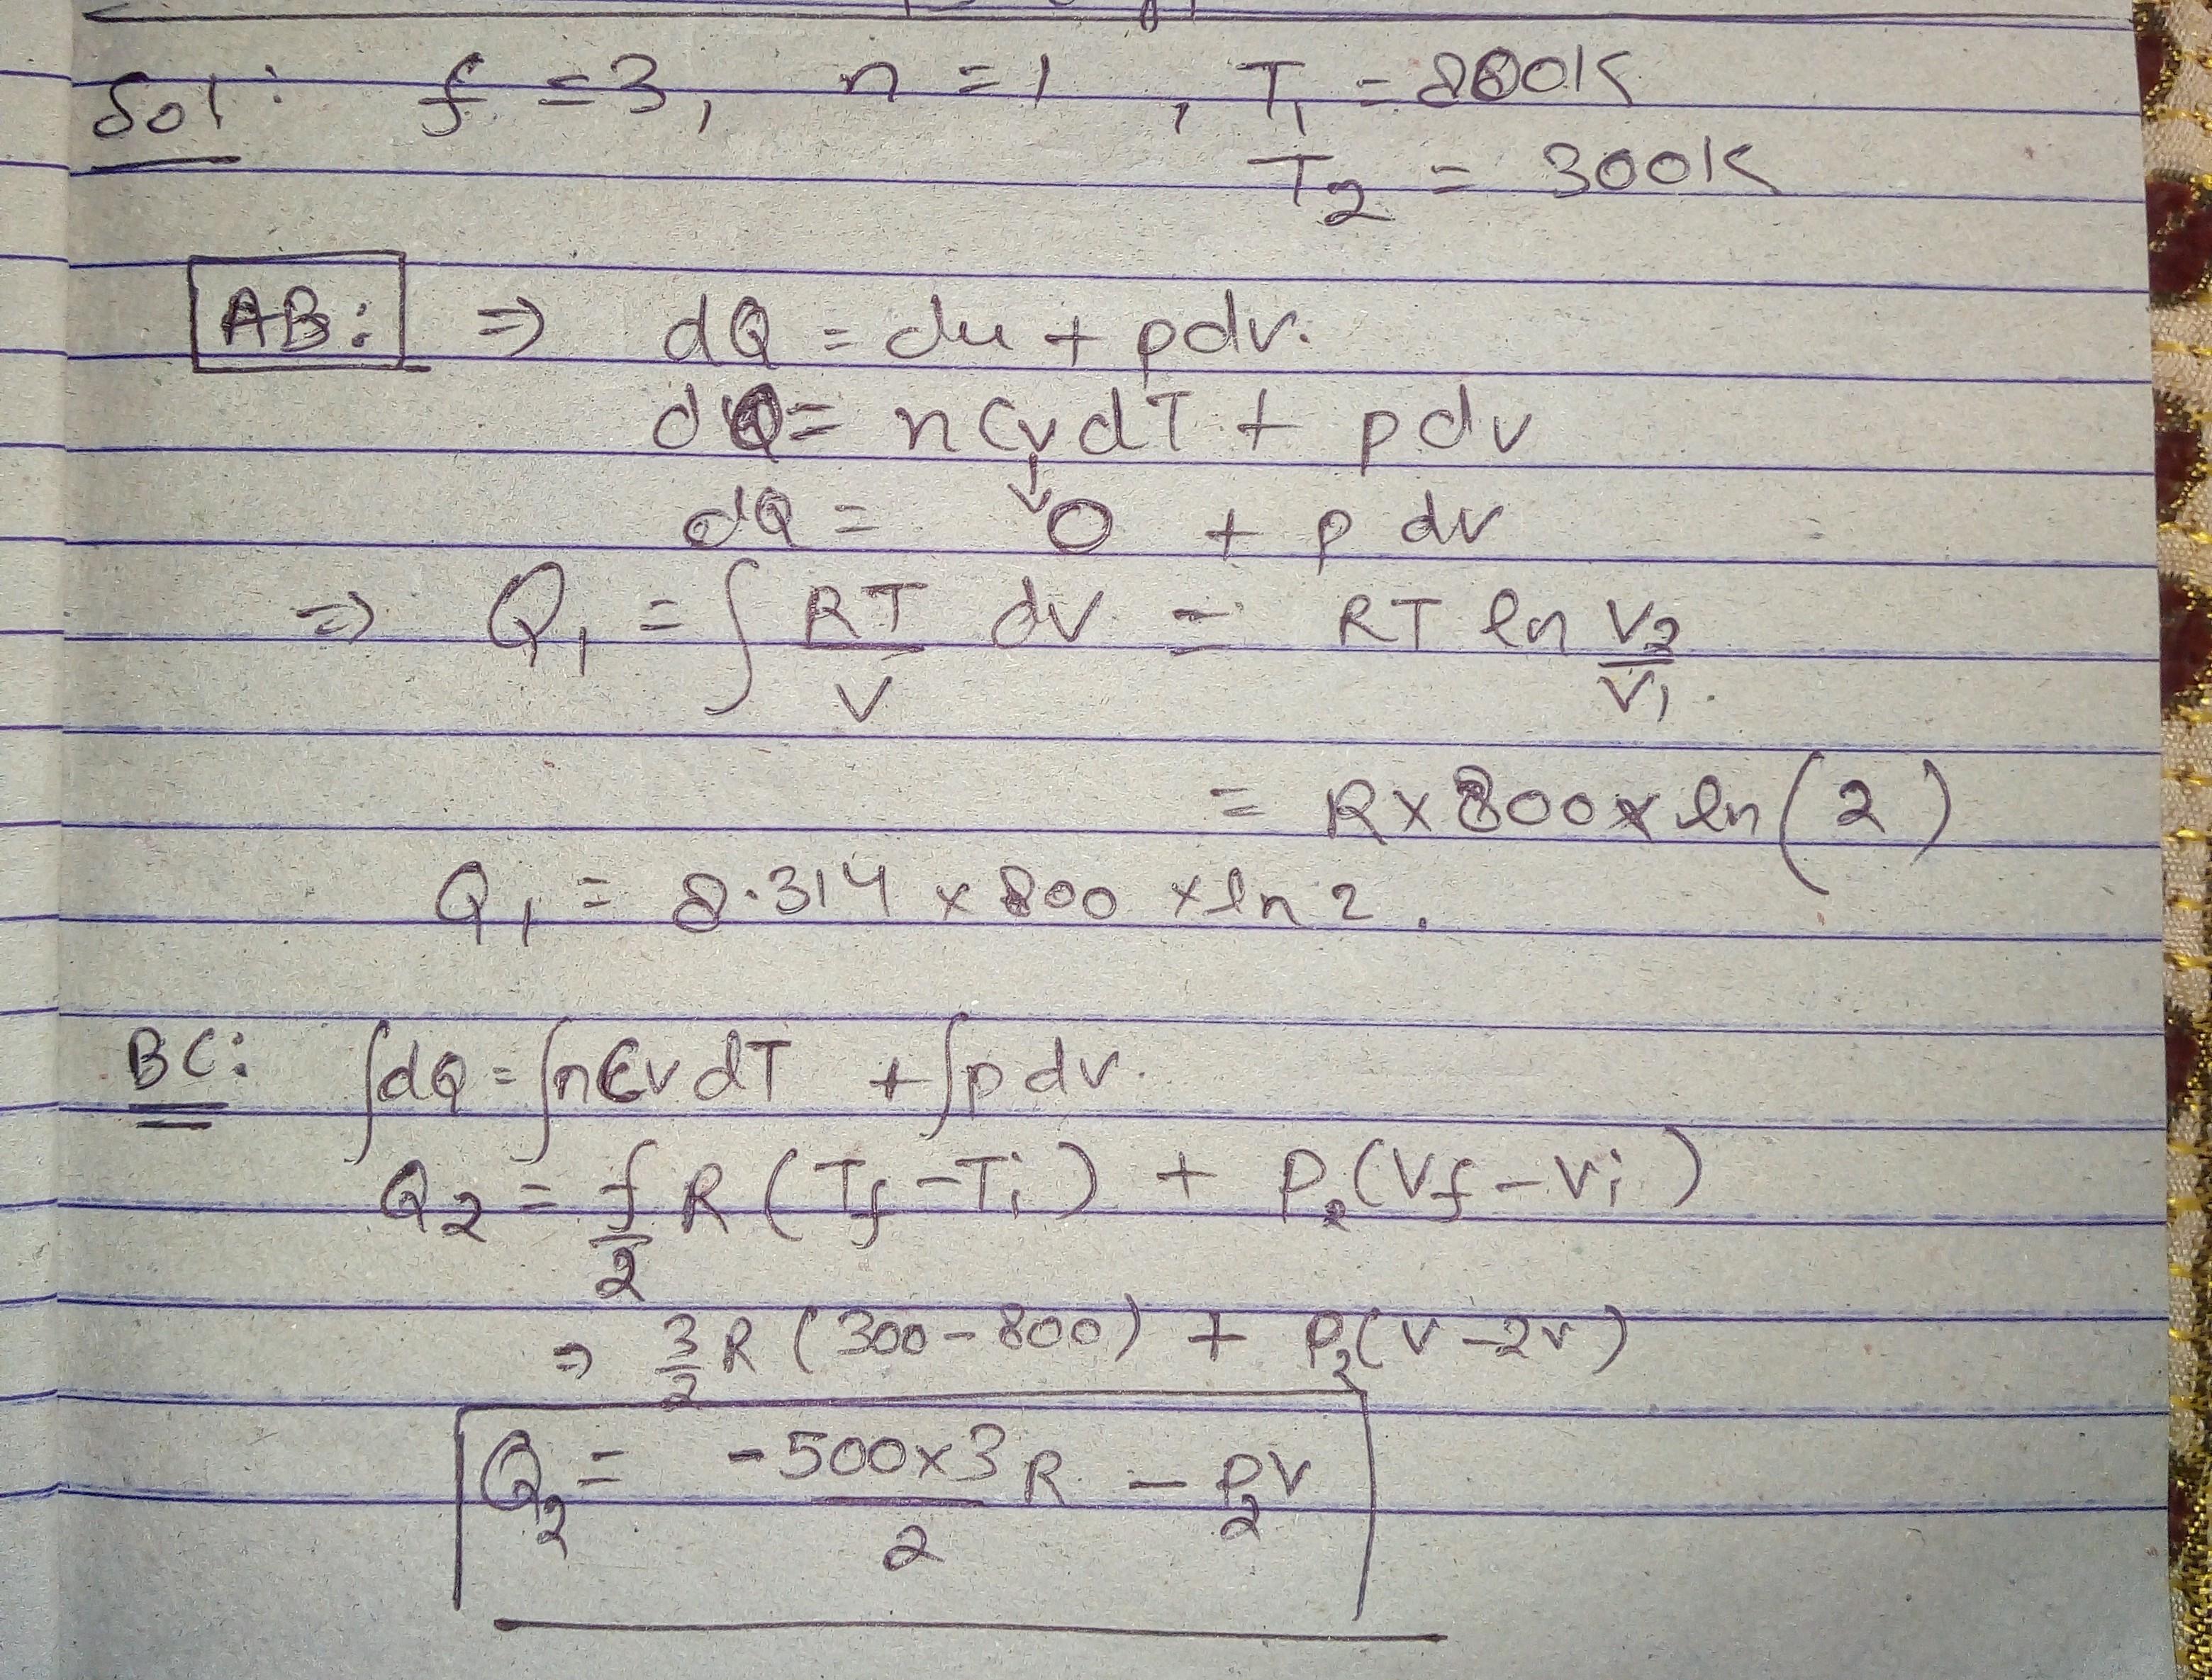 Sol: f = 3, n = 1, T₁ = 800K
T₂ = 300K
AB: ⇒ dQ = du + pdv.
dQ = nCvdT + pdv
↓
dQ = 0 + p dv
⇒ Q₁ = ∫ RT/V dv = RT ln V₂/V₁.
= R×800×ln(2)
Q₁ = 8.314 × 800 × ln 2.
BC: ∫dQ = ∫nCvdT + ∫pdv.
Q₂ = f/2 R (Tf - Ti) + P₂(Vf - Vi)
⇒ 3/2 R (300 - 800) + P₂(V - 2V)
Q₂ = -500×3/2 R - P₂V